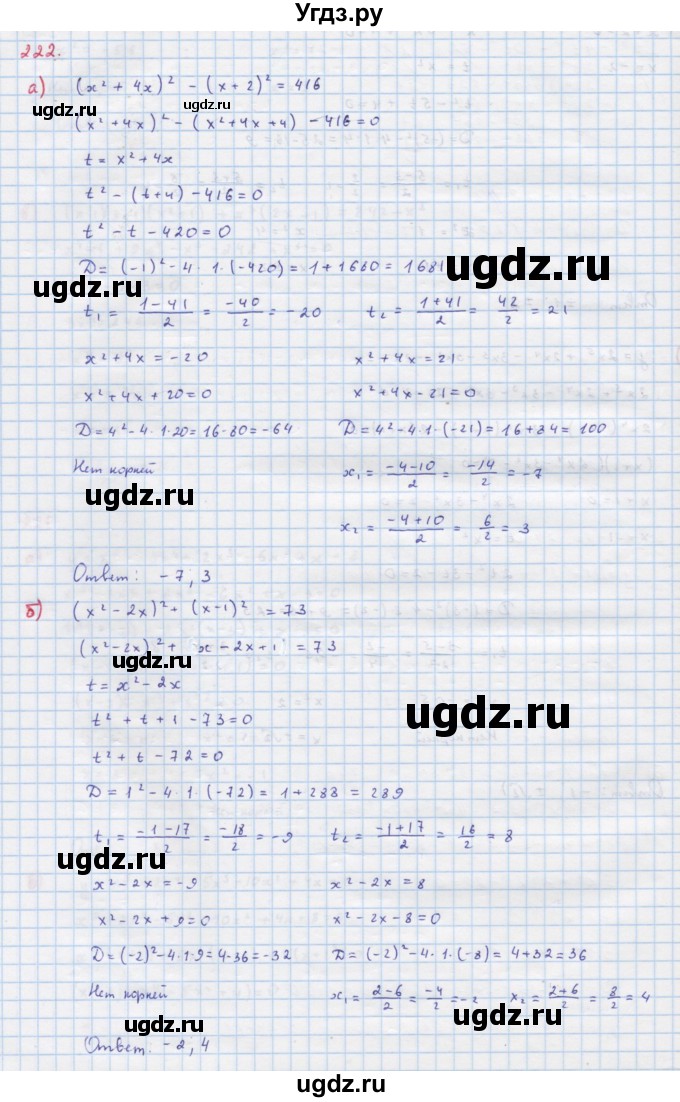 Угдз.ру
222.
а) (x² + 4x)² - (x+2)² = 416
ugdz.ru ugdz.ru
(x² + 4x)² - (x² + 4x + 4) - 416 = 0
t = x² + 4x
t² - (t+4) - 416 = 0
t² - t - 420 = 0
ugdz.ru
D = (-1)² - 4 · 1 · (-420) = 1 + 1680 = 1681
ugdz.ru
t₁ = (1-41)/2 = -40/2 = -20 t₂ = (1+41)/2 = 42/2 = 21
x² + 4x = -20 x² + 4x = 21
x² + 4x + 20 = 0 x² + 4x - 21 = 0
D = 4² - 4 · 1 · 20 = 16 - 80 = -64 D = 4² - 4 · 1 · (-21) = 16 + 84 = 100
Нет корней x₁ = (-4-10)/2 = -14/2 = -7
ugdz.ru
x₂ = (-4+10)/2 = 6/2 = 3
Ответ: -7, 3
б) (x² - 2x)² + (x-1)² = 73
(x² - 2x)² + x - 2x + 1 = 73
ugdz.ru
t = x² - 2x
ugdz.ru
t² + t + 1 - 73 = 0
t² + t - 72 = 0
D = 1² - 4 · 1 · (-72) = 1 + 288 = 289
t₁ = (-1-17)/2 = -18/2 = -9 t₂ = (-1+17)/2 = 16/2 = 8
ugdz.ru
x² - 2x = -9 x² - 2x = 8
x² - 2x + 9 = 0 x² - 2x - 8 = 0
D = (-2)² - 4 · 1 · 9 = 4 - 36 = -32 D = (-2)² - 4 · 1 · (-8) = 4 + 32 = 36
Нет корней x₁ = (2-6)/2 = -4/2 = -2 x₂ = (2+6)/2 = 8/2 = 4
ugdz.ru
Ответ. -2, 4
ugdz.ru